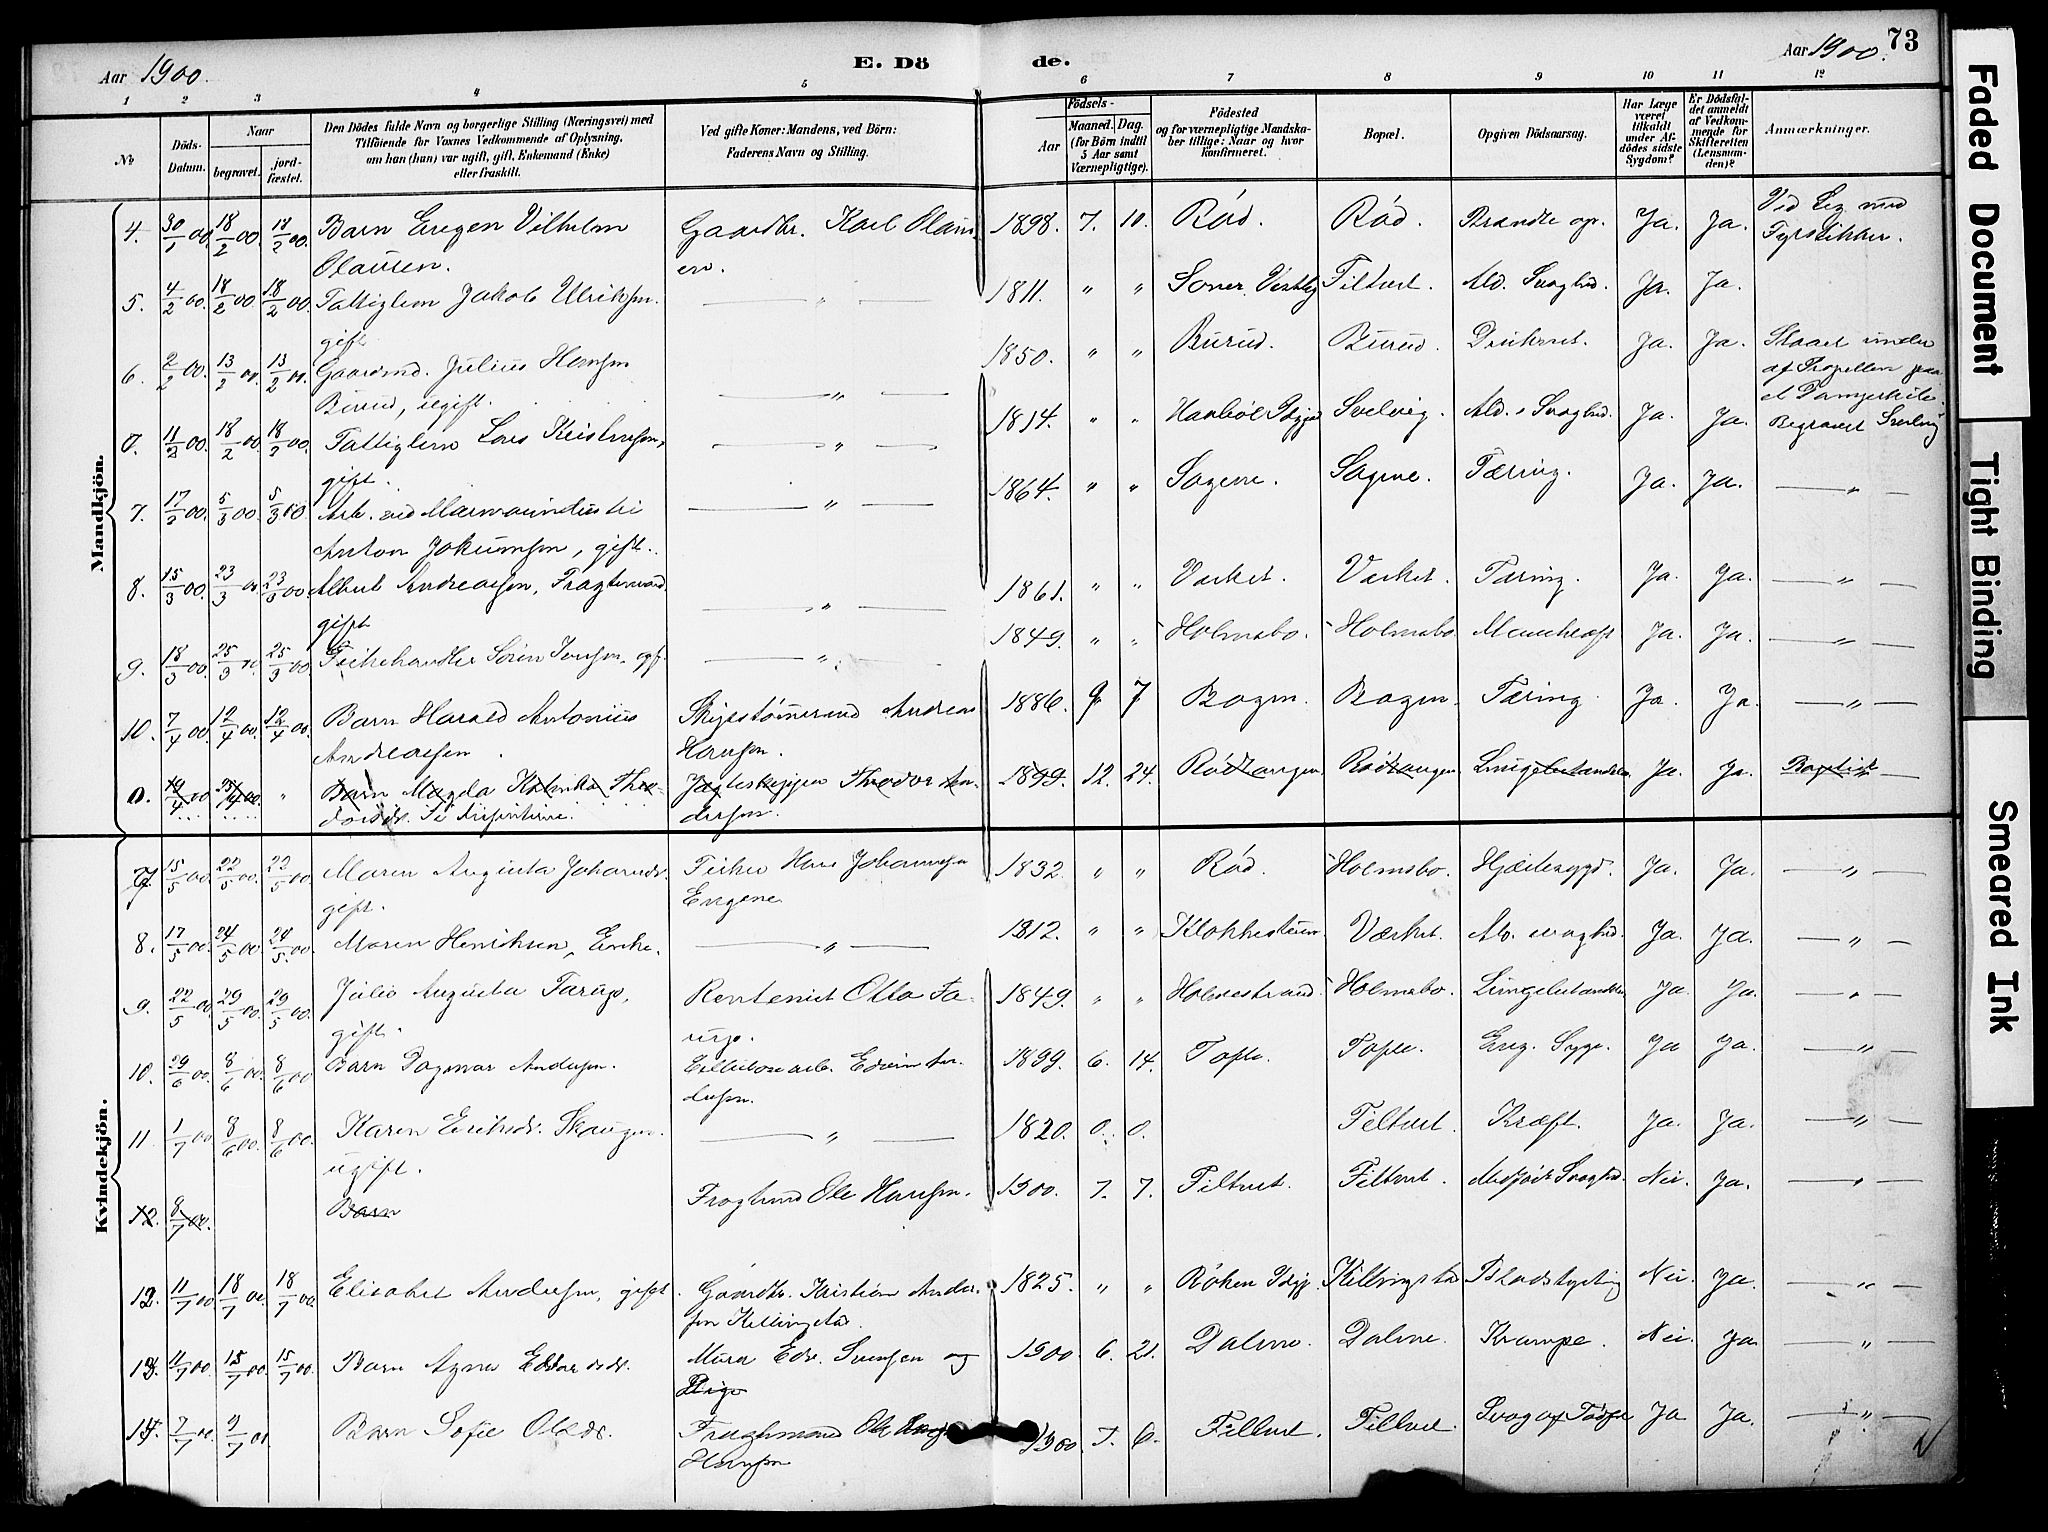 Aar 1900.
E. Dö
de.
Aar 1900.
73
1 2 3 4 5 6 7 8 9 10 11 12
No
Döds-Datum.
Naar
begravet.
jord-fæstet.
Den Dödes fulde Navn og borgerlige Stilling (Næringsvei) med
Tilföiende for Voxnes Vedkommende af Oplysning,
om han (hun) var ugift, gift, Enkemand (Enke)
eller fraskilt.
Ved gifte Koner: Mandens, ved Börn:
Faderens Navn og Stilling.
Födsels-
Aar
Maaned. Dag.
(for Börn indtil
5 Aar samt
Værnepligtige).
Födested
og for værnepligtige Mandska-
ber tillige: Naar og hvor
konfirmeret.
Bopæl.
Opgiven Dödsaarsag.
Har Læge
været
tilkaldt
under Af-
dödes sidste
Sygdom?
Er Dödsfal-
det anmeldt
af Vedkom-
mende for
Skifteretten
(Lensman-
den)?
Anmærkninger.
Mandkjön.
4. 30/1 00. 18/2 00. 18/2 00. Barn Eugen Vilhelm Gaardbr. Karl Olaus- 1898. 7. 10. Rød. Rød. Brandte op. Ja. Ja. Ved Leg med
Olausen. en. Fyrstikker.
5. 4/2 00. 18/2 00. 18/2 00. Fattiglem Jakob Ulriksen. — " — 1811. " " Soner, Vestby Filtvet. Ald. Svaghed. Ja. Ja.
gift
6. 2/2 00. 13/2 00. 13/2 00. Gaardmd. Julius Hansen — " — 1850. " " Burud. Burud. Druknet. Ja. Ja. Slaaet under
Burud, ugift. af Propellen paa
et Dampskib.
0. 11/2 00. 18/2 00. 18/2 00. Fattiglem Lars Kristensen, — " — 1814. " " Svelvig. Ald. Svaghed. Ja. Ja. Begravet Svelvig
gift.
7. 17/2 00. 5/3 00. 5/3 00. Arb. ved — " — 1864. " " Sagene. Sagene. Tæring. Ja. Ja. — " —
Anton Jokumsen, gift.
8. 15/3 00. 23/3 00. 23/3 00. Albert Andreasen, Fragtemand. — " — 1861. " " Verket. Verket. Tæring. Ja. Ja. — " —
gift
9. 18/3 00. 25/3 00. 25/3 00. Fiskehandler Søren Jensen, gift. — " — 1849. " " Holmsbo. Holmsbo. Ja. Ja. — " —
10. 7/4 00. 12/4 00. 12/4 00. Barn Harald Antonius Skibstømmermd Andreas 1886. 9 7 Bogen. Bogen. Tæring Ja. Ja. — " —
Andreasen. Hansen.
0. 19/4 00 25/4 00. " Barn Magda Katinka Theo- Jagteskipper Theodor An- 1899. 12. 24. Rødtangen. Rødtangen. Lungebetændelse Ja. Ja. Baptist
dorsdr. dersen.
Kvindekjön.
7 15/5 00. 22/5 00. 22/5 00. Maren Augusta Johansdr. Fisker Hans Johannesen 1832. " " Rød. Holmsbo. Hjertesygd. Ja. Ja. — " —
gift. Engene
8. 17/5 00. 24/5 00. 24/5 00. Maren Henriksen, Enke. — " — 1812. " " Klokkestuen. Værket. Ald. svaghed. Ja. Ja. — " —
9. 22/5 00. 29/5 00. 29/5 00. Julie Augusta Tarup, Rentenist Otto Ta- 1849. " " Holmestrand. Holmsbo. Lungebetændelse Ja. Ja. — " —
gift. rup.
10. 29/6 00. 8/6 00. 8/6 00. Barn Dagmar Andersen. Cellulosearb. Edvin An- 1899. 6. 14. Tofte. Tofte. Eng. Syge. Ja Ja. — " —
dersen.
11. 1/7 00 8/6 00. 8/6 00. Karen Eriksdr. Skaugen. — " — 1820. 0. 0. Filtvet. Kræft. Ja. Ja. — " —
ugift.
12. 8/7 00. Barn Fragtmd Ole Hansen. 1900. 7. 7. Filtvet. Filtvet. Medfødt Svaghed. Nei. Ja. — " —
12. 11/7 00 18/7 00. 18/7 00. Elisabet Andersen, gift. Gaardbr. Kristian Ander- 1825. " " Røken Pdgj. Killingstad Blodstyrtning Nei. Ja. — " —
sen Killingstad.
13. 11/7 00 15/7 00. 15/7 00. Barn Agna Edvardsdr. Murer Edv. Svensen og 1900. 6. 21. Dalene. Dalene. Krampe. Nei. Ja. — " —
14. 7/7 00 9/7 00. Barn Sofie Olsdr. Fragtmand Ole 1900 7. 6. Filtvet. Filtvet. Svag af Fødsel Ja Ja. — " —
Hansen
Faded Document
Tight Binding
Smeared Ink